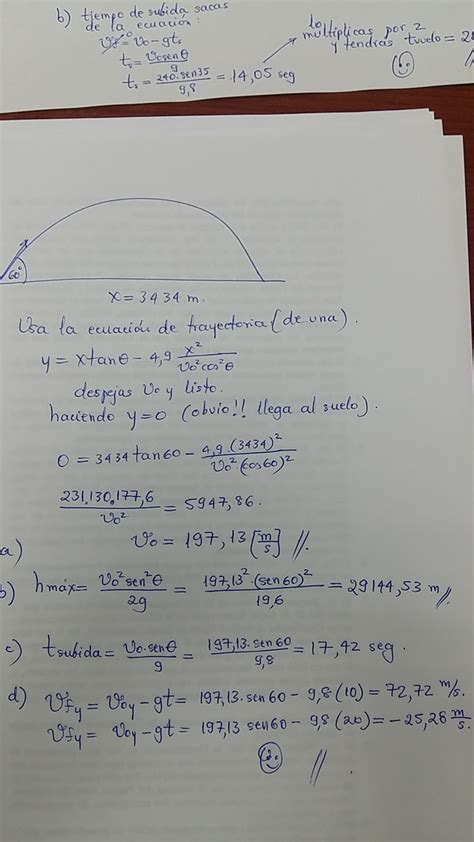 b) tiempo de subida sacas
de la ecuación:
vf = vo - gts
ts = vo senθ / g
ts = 240. sen35 / 9,8 = 14,05 seg
lo
multiplicas por 2
y tendrás tvuelo =
60°
x = 3434 m.
Usa la ecuación de trayectoria (de una).
y = xtanθ - 4,9 x² / vo² cos²θ
despejas vo y listo.
haciendo y=0 (obvio!! llega al suelo).
0 = 3434 tan60 - 4,9.(3434)² / vo².(cos60)²
231.130.177,6 / vo² = 5947,86.
a) vo = 197,13 [m/s] //.
b) hmáx = vo² sen²θ / 2g = 197,13².(sen60)² / 19,6 = 29144,53 m //.
c) tsubida = vo.senθ / g = 197,13.sen60 / 9,8 = 17,42 seg.
d) vfy = voy - gt = 197,13.sen60 - 9,8(10) = 72,72 m/s.
vfy = voy - gt = 197,13 sen60 - 9,8(20) = -25,28 m/s.
//